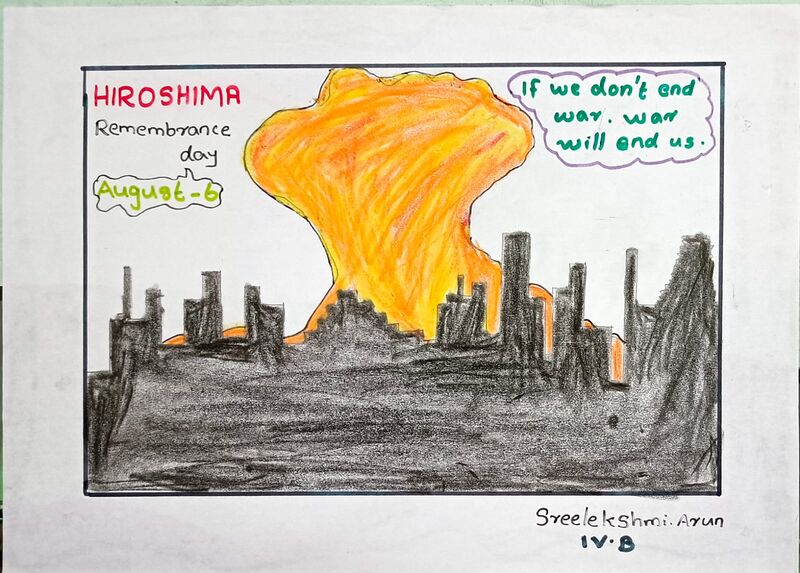 HIROSHIMA
Remembrance
day
August-6
If we don't end
war. war
will end us.
Sreelekshmi.Arun
IV.B